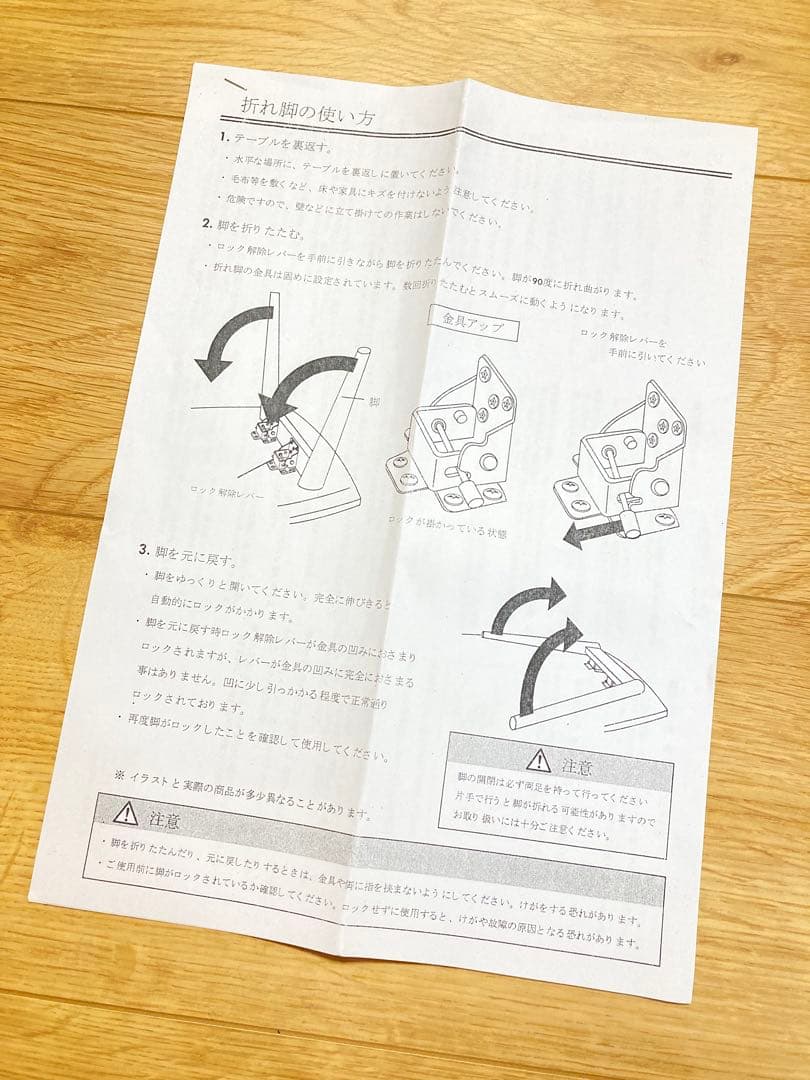 折れ脚の使い方
1. テーブルを裏返す。
・水平な場所に、テーブルを裏返しに置いてください。
・毛布等を敷くなど、床や家具にキズを付けないよう注意してください。
・危険ですので、壁などに立て掛けての作業はしないでください。
2. 脚を折りたたむ。
・ロック解除レバーを手前に引きながら脚を折りたたんでください。脚が90度に折れ曲がります。
・折れ脚の金具は固めに設定されています。数回折りたたむとスムーズに動くようになります。
金具アップ
ロック解除レバーを
手前に引いてください
脚
ロック解除レバー
ロックが掛かっている状態
3. 脚を元に戻す。
・脚をゆっくりと開いてください。完全に伸びきると
自動的にロックがかかります。
・脚を元に戻す時ロック解除レバーが金具の凹みにおさまり
ロックされますが、レバーが金具の凹みに完全におさまる
事はありません。凹に少し引っかかる程度で正常通り
ロックされております。
・再度脚がロックしたことを確認して使用してください。
※ イラストと実際の商品が多少異なることがあります。
注意
脚の開閉は必ず両足を持って行ってください
片手で行うと脚が折れる可能性がありますので
お取り扱いには十分ご注意ください。
注意
・脚を折りたたんだり、元に戻したりするときは、金具や脚に指を挟まないようにしてください。けがをする恐れがあります。
・ご使用前に脚がロックされているか確認してください。ロックせずに使用すると、けがや故障の原因となる恐れがあります。